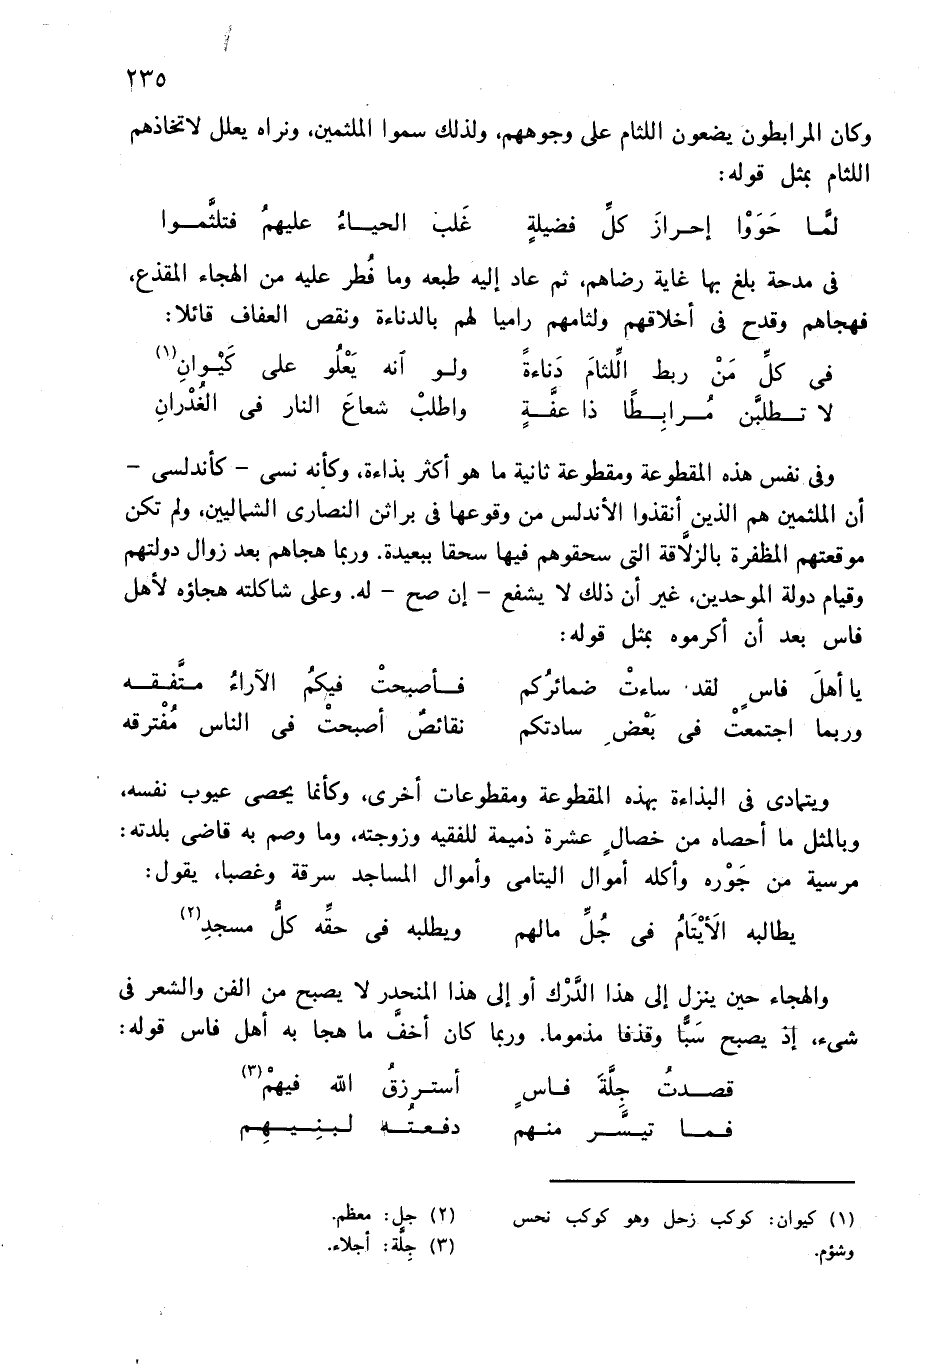 ٢٣٥
وكان المرابطون يضعون اللثام على وجوههم، ولذلك سموا الملثمين، ونراه يعلل لاتخاذهم
اللثام بمثل قوله:
لمَّـا حَوَوْا إحـرازَ كلِّ فضيلةٍ غَلبَ الحيـاءُ عليهمُ فتلثَّمـوا
فى مدحة بلغ بها غاية رضاهم، ثم عاد إليه طبعه وما فُطر عليه من الهجاء المقذع،
فهجاهم وقدح فى أخلاقهم ولثامهم راميا لهم بالدناءة ونقص العفاف قائلا:
فى كلِّ مَنْ ربط الِّلثامَ دَناءةً ولـو أنه يَعْلُو على كَيْـوانِ(١)
لا تـطلبَّن مُـرابِـطًا ذا عفَّـةٍ واطلبْ شعاعَ النار فى الغُدْرانِ
وفى نفس هذه المقطوعة ومقطوعة ثانية ما هو أكثر بذاءة، وكأنه نسى - كأندلسى -
أن الملثمين هم الذين أنقذوا الأندلس من وقوعها فى براثن النصارى الشماليين، ولم تكن
موقعتهم المظفرة بالزلَّاقة التى سحقوهم فيها سحقا ببعيدة. وربما هجاهم بعد زوال دولتهم
وقيام دولة الموحدين، غير أن ذلك لا يشفع - إن صح - له. وعلى شاكلته هجاؤه لأهل
فاس بعد أن أكرموه بمثل قوله:
يا أهلَ فاسٍ لقد ساءتْ ضمائرُكم فـأصبحتْ فيكمُ الآراءُ متَّفـقـه
وربما اجتمعتْ فى بَعْضِ سادتكم نقائصٌ أصبحتْ فى الناس مُفْترقه
ويتمادى فى البذاءة بهذه المقطوعة ومقطوعات أخرى، وكأنما يحصى عيوب نفسه،
وبالمثل ما أحصاه من خصالٍ عشرة ذميمة للفقيه وزوجته، وما وصم به قاضى بلدته:
مرسية من جَوْره وأكله أموال اليتامى وأموال المساجد سرقة وغصبا، يقول:
يطالبه الَأيْتَامُ فى جُلِّ مالهم ويطلبه فى حقِّه كلُّ مسجدِ(٢)
والهجاء حين ينزل إلى هذا الدَّرْك أو إلى هذا المنحدر لا يصبح من الفن والشعر فى
شىء، إذ يصبح سَبًّا وقذفا مذموما. وربما كان أخفَّ ما هجا به أهل فاس قوله:
قصـدتُ جِلَّةَ فـاسٍ أستـرزقُ الله فيهمْ(٣)
فـمـا تيـسَّـر منـهم دفعـتُـه لـبـنِـيـهِـم
(١) كيوان: كوكب زحل وهو كوكب نحس
وشؤم.
(٢) جل: معظم.
(٣) جِلَّة: أجلاء.